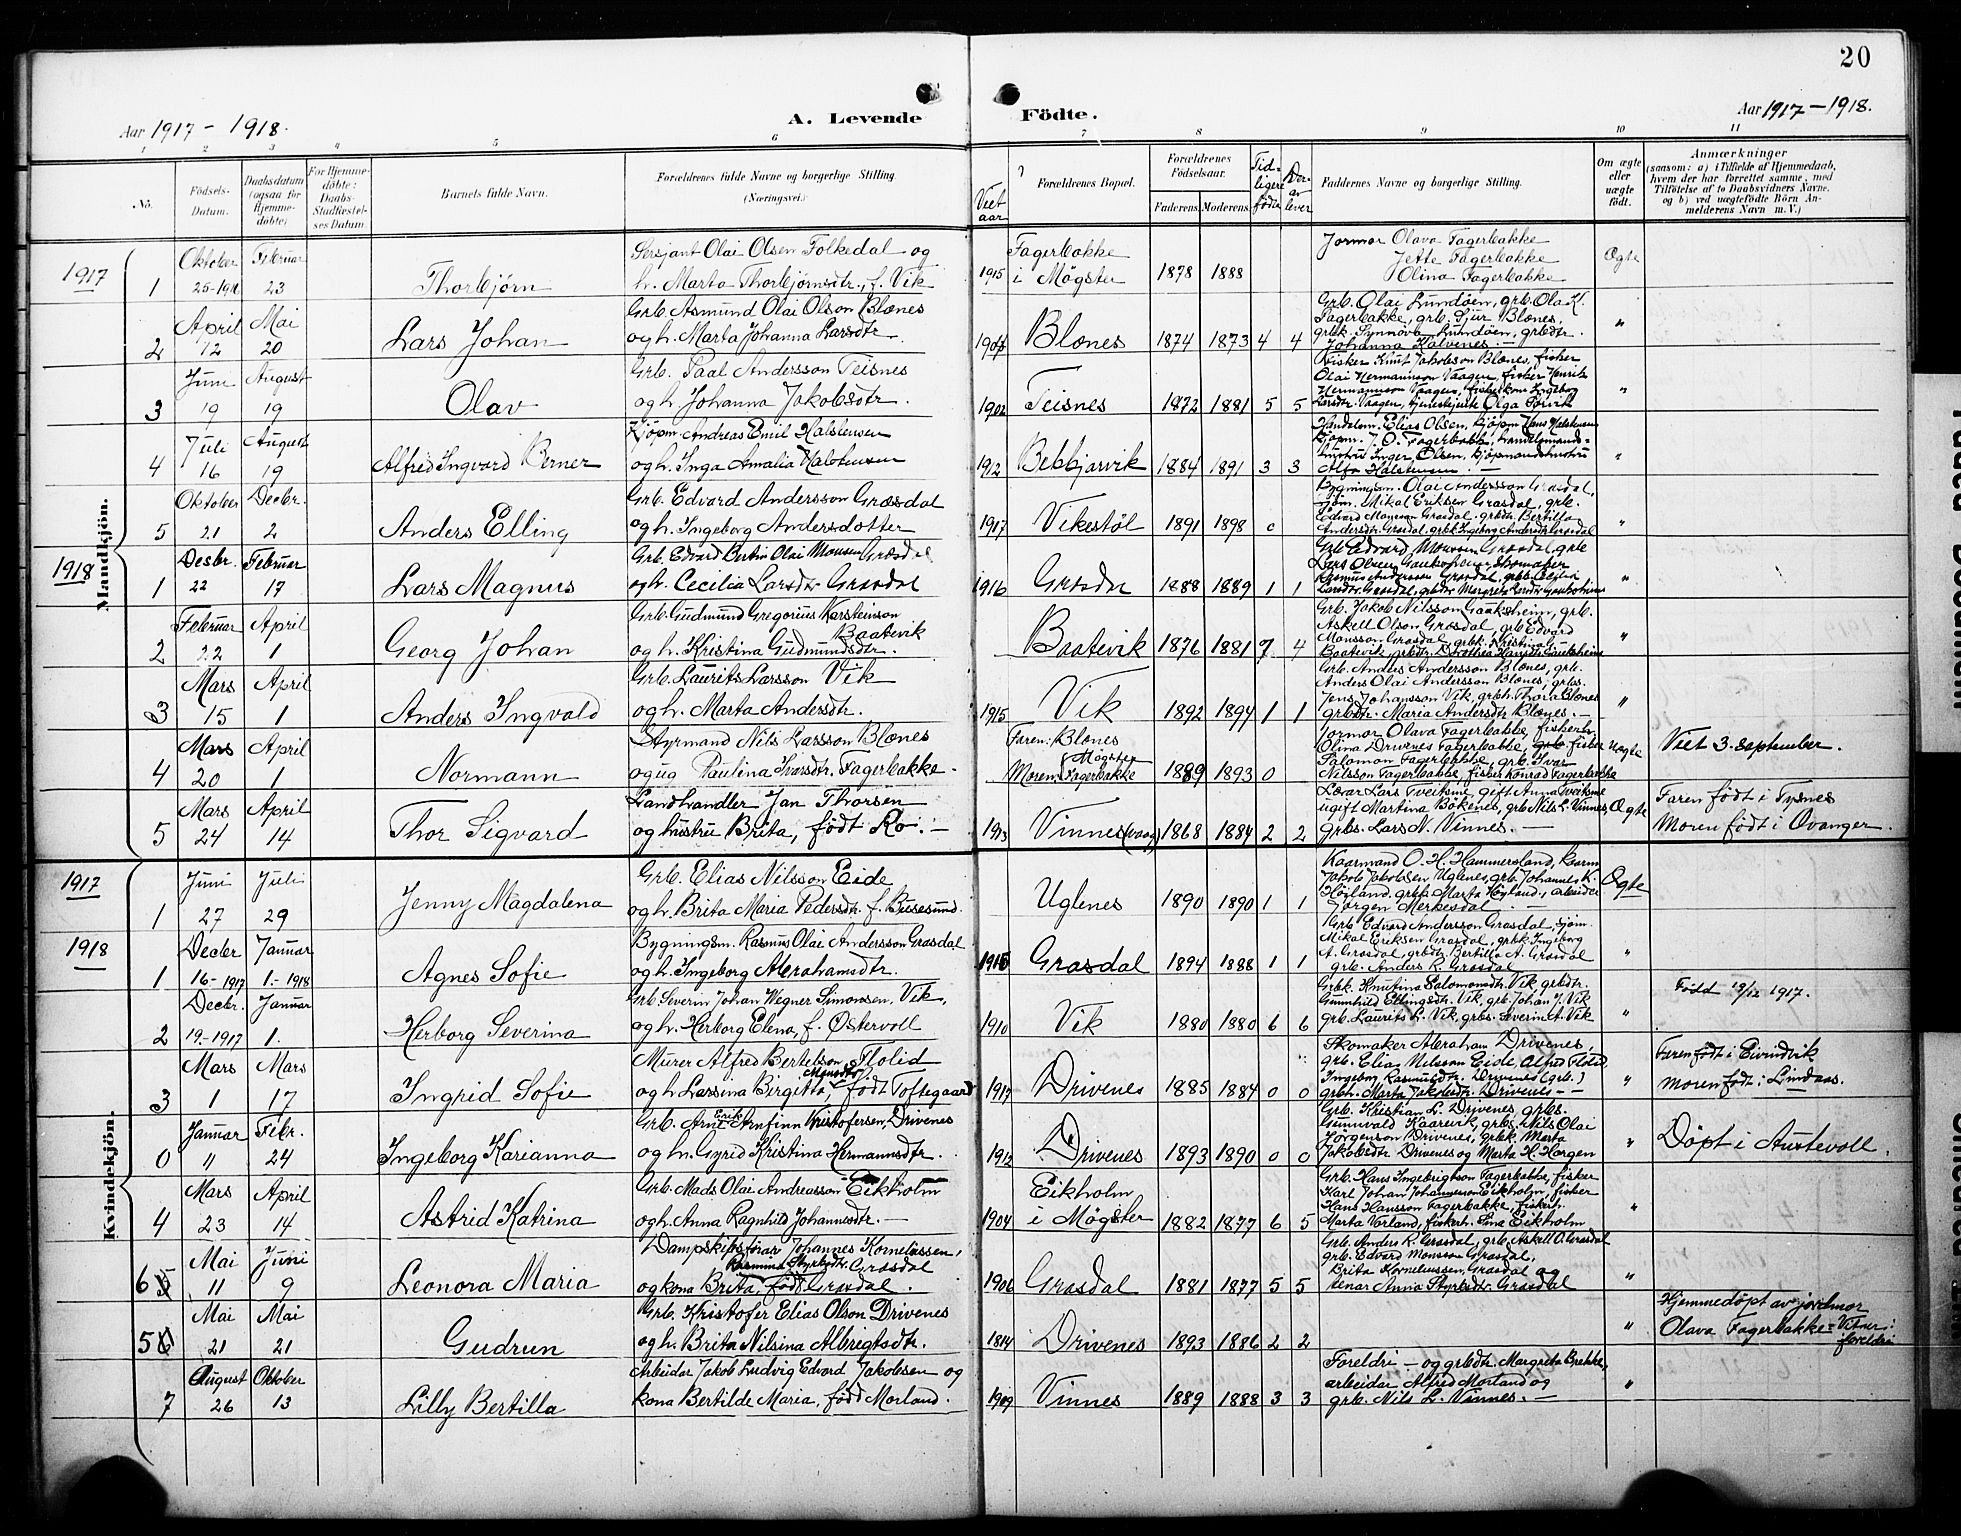 20
Aar 1917 - 1918.
A. Levende
Födte.
Aar 1917 - 1918.
1 2 3 4 5 6 7 8 9 10 11
No.
Födsels-Datum.
Daabsdatum (ogsaa for Hjemmedöbte)
For Hjemmedöbte: Daabs-Stadfæstelses Datum
Barnets fulde Navn.
Forældrenes fulde Navne og borgerlige Stilling (Næringsvei.)
Viet aar
Forældrenes Bopæl.
Forældrenes Födselsaar.
Faderens. Moderens.
Tidligere födte
Derav lever
Faddernes Navne og borgerlige Stilling.
Om ægte eller uægte födt.
Anmærkninger
(saasom: a) i Tilfælde af Hjemmedaab, hvem der har forrettet samme, med Tilföielse af to Daabsvidners Navne, og b) ved uægtefödte Börn Anmelderens Navn m. V.)
Mandkjön.
1917
1 Oktober 25-1916 Februar 23 Thorbjörn
Sersjant Olai Olsen Folkedal og
h. Marta Thorbjørnsdtr., f. Vik
1915 Fagerbakke i Møgster 1878 1888
Jormor Olava Fagerbakke
Jette Fagerbakke
Olina Fagerbakke
Ogte
2 April 12 Mai 20 Lars Johan
Grb. Asmund Olai Olson Blænes
og h. Marta Johanna Larsdtr.
Blænes 1874 1873 4 4
Grb. Olai Lundøen, grb. Ola K.
Fagerbakke, grb. Sjur Blænes,
grbk. Synnøva Lundøen, grbdtr.
Johanna Kalvenes. —
"
3 Juni 19 August 19 Olav
Grb. Paal Andersson Teisnes
og h. Johanna Jakobsdtr.
1902 Teisnes 1872 1881 5 5
Fisker Knut Jakobsson Blænes, fisker
Olai Hermannson Vaagen, fisker Henrik
Hermannson Vaagen, fiskerkone Ingeborg
Larsdtr. Vaagen, tjenestejente Olga
"
4 Juli 16 August 19 Alfred Ingvard Berner
Kjøpm. Andreas Emil Halstensen
og h. Inga Amalia Halstensen
1912 Bekkjarvik 1884 1891 3 3
Handelsm. Elias Olsen, kjøpm Hans Halstensen
kjøpm. J. O. Fagerbakk, handelsmands-
hustru Inger Olsen, kjøpmandshustru
Alfa Halstensen. —
"
5 Oktober 21 Decbr. 2 Anders Elling
Grb. Edvard Andersson Græsdal
og h. Ingeborg Andersdotter
1917 Vikestöl 1891 1898 0
Bygningsm. Olai Andersson Græsdal,
sjøm. Mikal Eriksen Græsdal, grb.
Edvard Monsson Græsdal, grbdtr. Bertilla
Andersdtr. Græsdal, grbk Ingeborg Andersdtr Græsdal
"
1918
1 Desbr. 22 Februar 17 Lars Magnus
Grb. Edvard Bertin Olai Monsen Græsdal
og h. Cecilia Larsdtr Græsdal
1916 Græsdal 1888 1889 1 1
Grb Edvard Monssen Græsdal, grb
Lars Olsen Gauksheim, skomaker
Rasmus Andersson Græsdal, grbk. Cecilia
Larsdtr Græsdal, grbdtr Margreta Larsdtr Gauksheim
"
2 Februar 22 April 1 Georg Johan
Grb. Gudmund Gregorius Karsteinson
Baatevik
og h. Kristina Gudmundsdtr.
Baatevik 1876 1881 7 4
Grb. Jakob Nilsson Gauksheim, grb.
Askell Olson Græsdal, grb Edvard
Monsson Græsdal, grbk. Kristina G.
Baatevik, grbdtr. Dorothea Hansdtr. Gauksheim
"
3 Mars 15 April 1 Anders Ingvald
Grb. Laurits Larsson Vik
og h. Marta Andersdtr.
1915 Vik 1892 1894 1 1
Grb. Anders Andersson Blænes, grb.
Anders Olai Andersson Blænes, grbs.
Jens Johansson Vik, grbh. Thora Blænes
grbdtr. Maria Andersdtr Blænes. —
"
4 Mars 20 April 1 Normann
Styrmand Nils Larsson Blænes
og ug Paulina Ivarsdtr. Fagerbakke.
Faren: Blænes
Moren: Fagerbakke Møgster 1889 1893 0
Jormor Olava Fagerbakke, fiskerh
Olina Drivenes Fagerbakke, fisker
Salomon Fagerbakke, grb. Ivar
Nilsson Fagerbakke, fisker Konrad Fagerbakke
Uægte
Viet 3. september.
5 Mars 24 April 14 Thor Sigvard
Landhandler Jan Thorsen
og hustru Brita, født Ro. —
1913 Vinnes (vaag) 1868 1884 2 2
Lærar Lars Tveitane, gift Anna Tveitane
ugift Martina Bökenes, grb Nils L. Vinnes,
grbs. Lars N. Vinnes. —
Ogte
Faren født i Tysnes
Moren født i Ovanger.
Kvindekjön.
1917
1 Juni 27 Juli 29 Jenny Magdalena
Grb. Elias Nilsson Eide
og h. Brita Maria Pedersdtr. f. Busesund.
Uglenes 1890 1890 1 1
Kaarmand O. H. Hammersland, kaarm
Jakob Jakobsen Uglenes, grb. Johannes K.
Høyland, grbk. Marta Høyland, arbeider
Jørgen Merkesdal
Ogte
1918
1 Decbr 16-1917 Januar 1.-1918 Agnes Sofie
Bygningsm. Rasmus Olai Andersson Græsdal
og h. Ingeborg Abrahamsdtr.
Græsdal 1894 1888 1 1
Grb Edvard Andersson Græsdal, sjøm.
Mikal Eriksen Græsdal, grbk Ingeborg
A. Græsdal, grbdtr. Bertilla A. Græsdal
grb. Anders R. Græsdal
"
2 Decbr. 19.-1917 Januar 1. Herborg Severina
Grb Severin Johan Wegner Simonsen, Vik,
og h. Herborg Elena, f. Østervoll
1910 Vik 1880 1880 6 6
Grbk. Knutina Salomonsdtr. Vik, grbdtr.
Gunnhild Ellingsdtr. Vik, grb. Johan J. Vik
grb. Laurits L. Vik, grbs. Severin A. Vik
"
Född 19/12 1917.
3 Mars 1 Mars 17 Ingrid Sofie
Murer Alfred Bertelson Flolid
og h. Lassina Birgitta Monsdtr, født Toftegaard
1917 Drivenes 1885 1884 0 0
Skomaker Abraham Drivenes,
grb. Elias Nilsson Eide, Alfred Flolid,
Ingeborg Rasmusdtr. Drivenes (grb.)
grbh. Marta Jakobsdtr. Drivenes - -
"
Faren født i Eivindvik
Moren født i Lindaas.
0 Januar 11 Febr. 24 Ingeborg Karianna
Grb. Arne Erik Arnfinn Kristofersen, Drivenes
og h. Gyrid Kristina Hermannsdtr.
1912 Drivenes 1893 1890 0 0
Grb. Kristian L. Drivenes, grbs.
Gunnvald Kaarevik, grbs. Nils Olai
Jørgenson Drivenes, grbk. Marta
Jakobsdtr Drivenes og Marta H. Horgen
"
Döpt i Austevoll.
4 Mars 23 April 14 Astrid Katrina
Grb. Mads Olai Andreasson Eikholm
og h. Anna Ragnhild Johannesdtr. —
1904 Eikholm i Møgster 1882 1877 6 5
Grb. Hans Ingebrigtson Fagerbakke, fisker
Karl Johan Johannesson Eikholm, fisker
Hans Hansson Fagerbakke, fiskerh.
Marta Vorland, fiskerh. Lina Eikholm
"
6 Mai 11 Juni 9 Leonora Maria
Dampskibsförar Johannes Korneliussen,
Rasmina Styrksdtr. Græsdal
og kona Brita, född Græsdal.
1906 Græsdal 1881 1877 5 5
Grb. Anders R. Græsdal, grb. Askell O. Græsdal
grb. Edvard Monsson Græsdal,
Brita Korneliussen, Græsdal og
tenar Anna Styrksdtr. Græsdal
"
5 Mai 21 Mai 21 Gudrun
Grb. Kristofer Elias Olson Drivenes
og h. Brita Nilsina Albrigtsdtr.
1814 Drivenes 1893 1886 2 2
"
Hjemmedøpt av jordmor
Olava Fagerbakke - Vitner: foreldri
7 August 26 Oktober 13 Lilly Bertilla
Arbeidar Jakob Ludvig Edvard Jakobsen og
kona Bertilde Maria, född Morland.
1909 Vinnes 1889 1888 3 3
Foreldri — og grbdtr. Margreta Brekke,
arbeidar Alfred Morland og
grb. Nils L. Vinnes. —
"